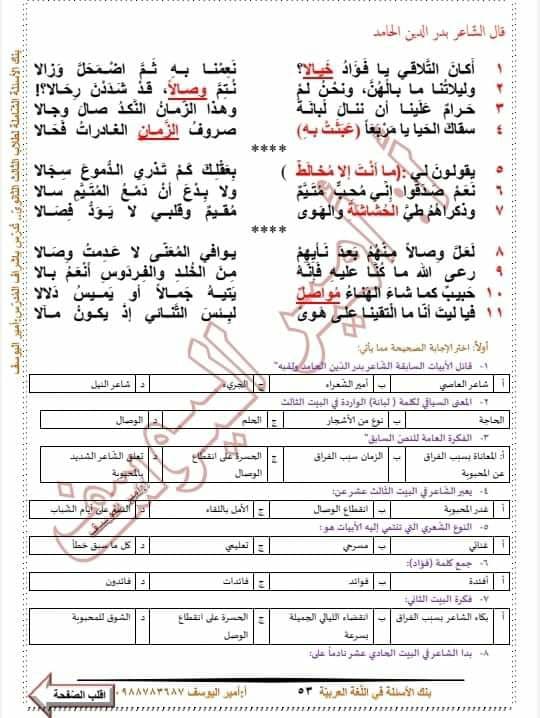 قال الشّاعر بدر الدين الحامد
١ أكانَ التّلاقي يا فؤادُ خَيالا؟ نَعِمْنـا بـهِ ثـمّ اضْـمَحَلَّ وَزالا
٢ وليلاتُنا ما بـالُهُنَّ، ونحـنُ لمْ نُتِمَّ وِصالاً، قدْ شَدَدْنَ رِحالا؟!
٣ حـرامٌ عَلَينا أن ننـال لُبانَةً وهذا الزّمانُ النّكدُ صالَ وجالا
٤ سقاكَ الحيا يا مَرْبَعاً (عَبَثَتْ بهِ) صروفُ الزَّمانِ الغادراتُ فَحَالا
****
٥ يقولونَ لي :(ما أنْتَ إلا مُخالَطٌ ) بِعَقْلِكَ كم تَذري الدُّموعَ سِجالا
٦ نَعَمْ صَدَقُوا إنّي مُحِبٌّ مُتَيَّمٌ ولا بِـدْعَ أنّ دَمْعَ المُتَيَّمِ سـالا
٧ وذكراهُمُ طَيَّ الحُشاشَةِ والهَوى مُقيمٌ وقلبي لا يَـودُّ فِصَـالا
****
٨ لَعَلَّ وِصالاً مِنْهُمُ بعدَ نَأْيِهِمْ يوافي المُعَنّى لا عَدِمْتُ وِصالا
٩ رعى الله ما كُنّا عليهِ فإنّهُ مِنَ الخُلدِ والفِردَوسِ أنْعَمُ بالا
١٠ حبيبٌ كما شاءَ الهَناءُ مُواصِلٌ يَتيهُ جَمـالاً أو يَميسُ دَلالا
١١ فيا ليتَ أنّا ما الْتَقَينا على هَوىً لبِئسَ التَّنائي إذ يكونُ مـآلا
أولاً: اختر الإجابة الصحيحة مما يأتي:
١- قائل الأبيات السابقة الشّاعر بدر الدّين الحامد ولقبه"
أ شاعر العاصي ب أمير الشّعراء ج الجريء د شاعر النيل
٢- المعنى السياقي لكلمة ( لبانة) الواردة في البيت الثالث
الحاجة ب نوع من الأشجار ج الحلم د الوصال
٣- الفكرة العامة للنصّ السابق"
أ: المعاناة بسبب الفراق عن المحبوبة ب الزمان سبب الفراق ج الحسرة على انقطاع الوصال د تعلق الشّاعر الشديد بالمحبوبة
٤- يعبر الشّاعر في البيت الثالث عشر عن:
أ غدر المحبوبة ب انقطاع الوصال ج الأمل باللقاء د على أيام الشّباب
٥- النوع الشّعري التي تنتمي إليه الأبيات هو:
أ غنائي ب مسرحي ج تعليمي د كل ما سبق خطأ
٦- جمع كلمة (فؤاد):
أ أفئدة ب فوائد ج فائدات د فائدون
٧- فكرة البيت الثاني:
أ بكاء الشاعر بسبب الفراق ب انقضاء الليالي الجميلة بسرعة ج الحسرة على انقطاع الوصل د الشوق للمحبوبة
٨- بدا الشاعر في البيت الحادي عشر نادماً على:
بنك الأسئلة في اللّغة العربيّة ٥٣ أ:أمير اليوسف ٠٩٨٨٧٨٣٦٨٧ اقلب الصّفحة
بنك الأسئلة الشّاملة لطلاب الثالث الثانوي.. المدرّس: أمير اليوسف
أ: أمير اليوسف